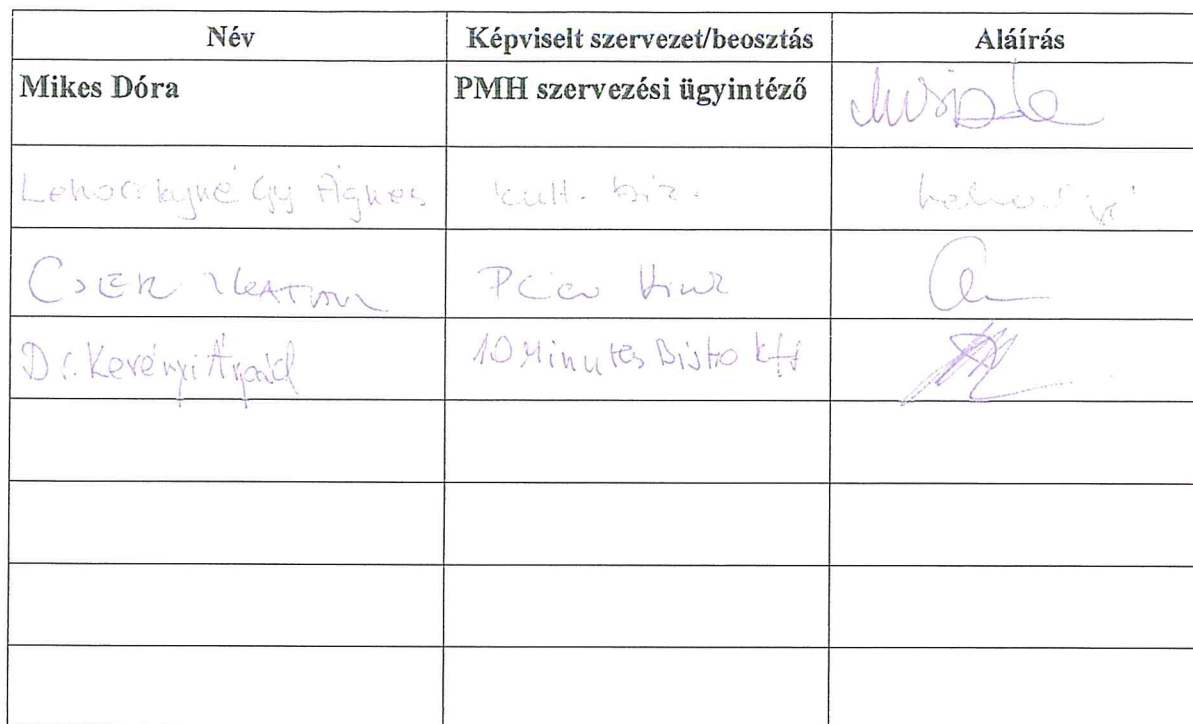 Név Képviselt szervezet/beosztás Aláírás
Mikes Dóra PMH szervezési ügyintéző
Lehoczkyné Gy Ágnes kult. biz.
CSER KATALIN
Dr. Kerényi Árpád 10 Minutes Bistro Kft